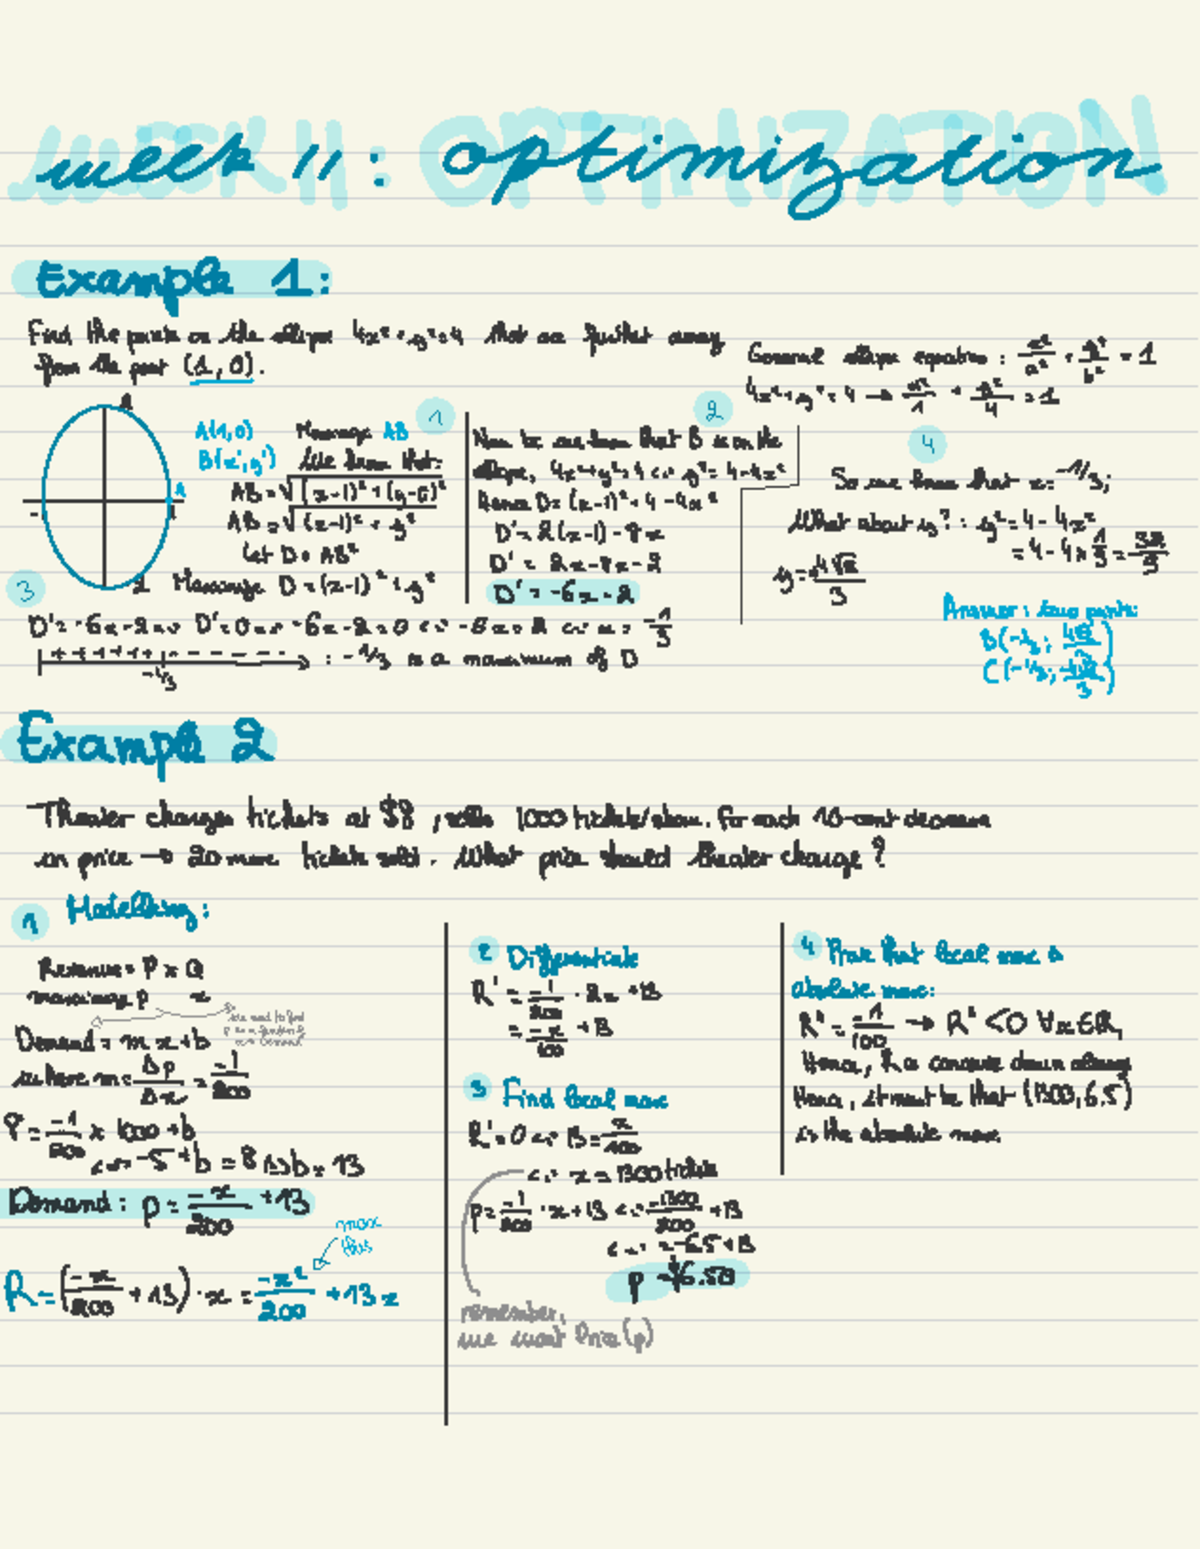 week 11: optimization
Example 1:
Find the points on the ellipse 4x² + y² = 4 that are furthest away
from the point (1, 0).
General ellipse equation: x²/a² + y²/b² = 1
4x² + y² = 4 → x²/1 + y²/4 = 1
1
A(1,0) Maximize AB
B(x, y) We know that:
AB = √(x-1)² + (y-0)²
AB = √(x-1)² + y²
Let D = AB²
Maximize D = (x-1)² + y²
2
Now we know that B is on the
ellipse, 4x² + y² = 4 <=> y² = 4 - 4x²
Hence D = (x-1)² + 4 - 4x²
D' = 2(x-1) - 8x
D' = 2x - 8x - 2
D' = -6x - 2
3
D' = -6x - 2 => D' = 0 <=> -6x - 2 = 0 <=> -6x = 2 <=> x = -1/3
+ + + + + + + - - - - - -
-1/3
: -1/3 is a maximum of D
4
So we know that x = -1/3;
What about y?: y² = 4 - 4x²
= 4 - 4 x 1/9 = 32/9
y = ±4√2/3
Answer: two points:
B(-1/3; 4√2/3)
C(-1/3; -4√2/3)
Example 2
Theater charges tickets at $8, sells 1000 tickets/show. For each 10-cent decrease
in price → 20 more tickets sold. What price should theater charge?
1 Modelling:
Revenue = P x Q
maximize p x
we need to find
Demand = mx + b
where m = Δp/Δx = -1/200
P = -1/200 x 1000 + b
<=> -5 + b = 8 => b = 13
Demand: p = -x/200 + 13
max this
R = (-x/200 + 13) · x = -x²/200 + 13x
2 Differentiate
R' = -1/200 · 2x + 13
= -x/100 + 13
3 Find local max
R' = 0 <=> 13 = x/100
<=> x = 1300 tickets
p = -1/200 · x + 13 <=> -1300/200 + 13
<=> = -6.5 + 13
p = $6.50
remember,
we want Price (p)
4 Prove that local max is
absolute max:
R" = -1/100 → R" < 0 ∀x∈ℝ,
Hence, R is concave down always
Hence, it must be that (1300, 6.5)
is the absolute max